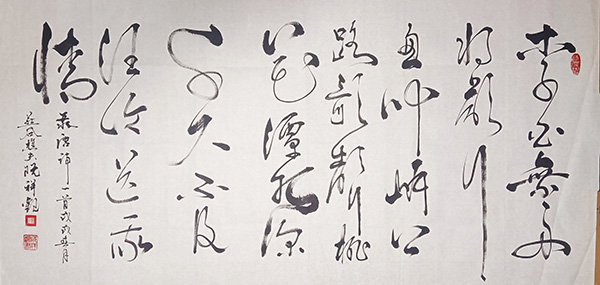 李白乘舟
将欲行
忽闻岸上
踏歌聲桃
花潭水深
千尺不及
汪伦送我
情
录唐诗一首戊戌春月